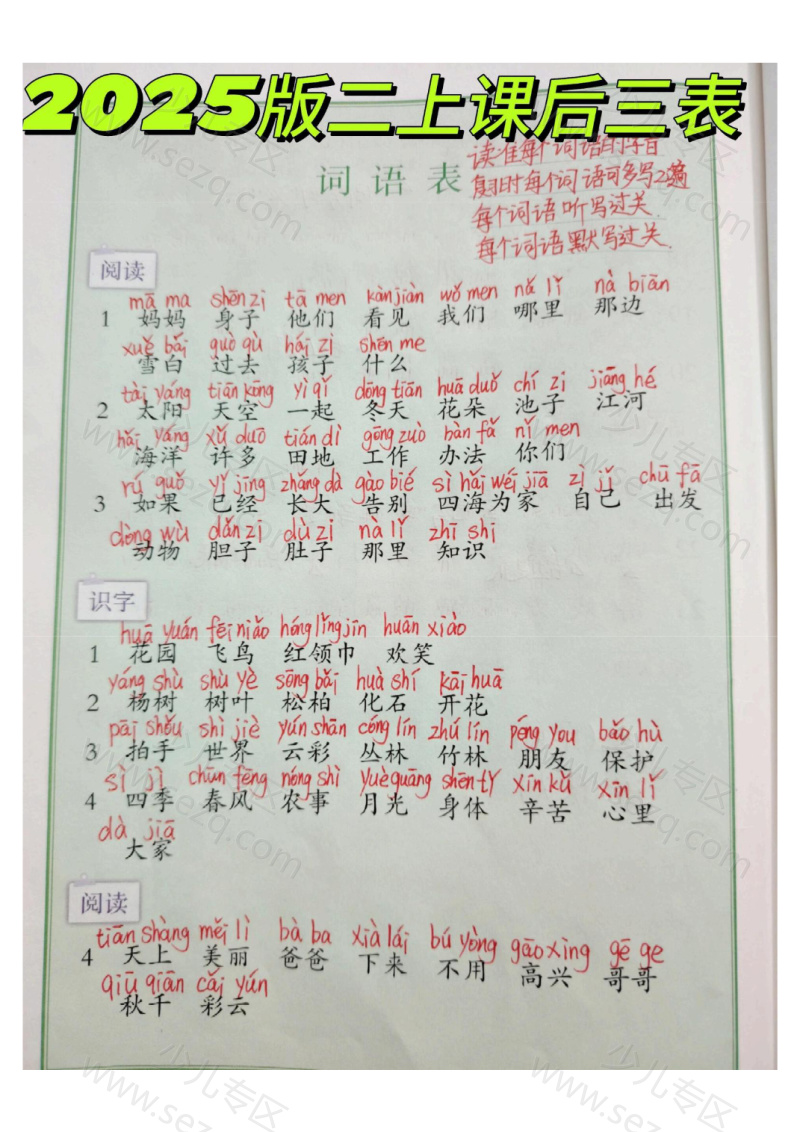 2025版二上课后三表
词语表
读准每个词语的字音
复习时每个词语可多写2遍
每个词语听写过关.
每个词语默写过关.
阅读
mā ma shēn zi tā men kàn jiàn wǒ men nǎ lǐ nà biān
1 妈妈 身子 他们 看见 我们 哪里 那边
xuě bái guò qù hái zi shén me
雪白 过去 孩子 什么
tài yáng tiān kōng yì qǐ dōng tiān huā duǒ chí zi jiāng hé
2 太阳 天空 一起 冬天 花朵 池子 江河
hǎi yáng xǔ duō tián dì gōng zuò bàn fǎ nǐ men
海洋 许多 田地 工作 办法 你们
rú guǒ yǐ jīng zhǎng dà gào bié sì hǎi wéi jiā zì jǐ chū fā
3 如果 已经 长大 告别 四海为家 自己 出发
dòng wù dǎn zi dù zi nà lǐ zhī shi
动物 胆子 肚子 那里 知识
识字
huā yuán fēi niǎo hóng lǐng jīn huān xiào
1 花园 飞鸟 红领巾 欢笑
yáng shù shù yè sōng bǎi huà shí kāi huā
2 杨树 树叶 松柏 化石 开花
pāi shǒu shì jiè yún shān cóng lín zhú lín péng you bǎo hù
3 拍手 世界 云彩 丛林 竹林 朋友 保护
sì jì chūn fēng nóng shì yuè guāng shēn tǐ xīn kǔ xīn lǐ
4 四季 春风 农事 月光 身体 辛苦 心里
dà jiā
大家
阅读
tiān shàng měi lì bà ba xià lái bú yòng gāo xìng gē ge
4 天上 美丽 爸爸 下来 不用 高兴 哥哥
qiū qiān cǎi yún
秋千 彩云
少儿专区
www.sezq.com